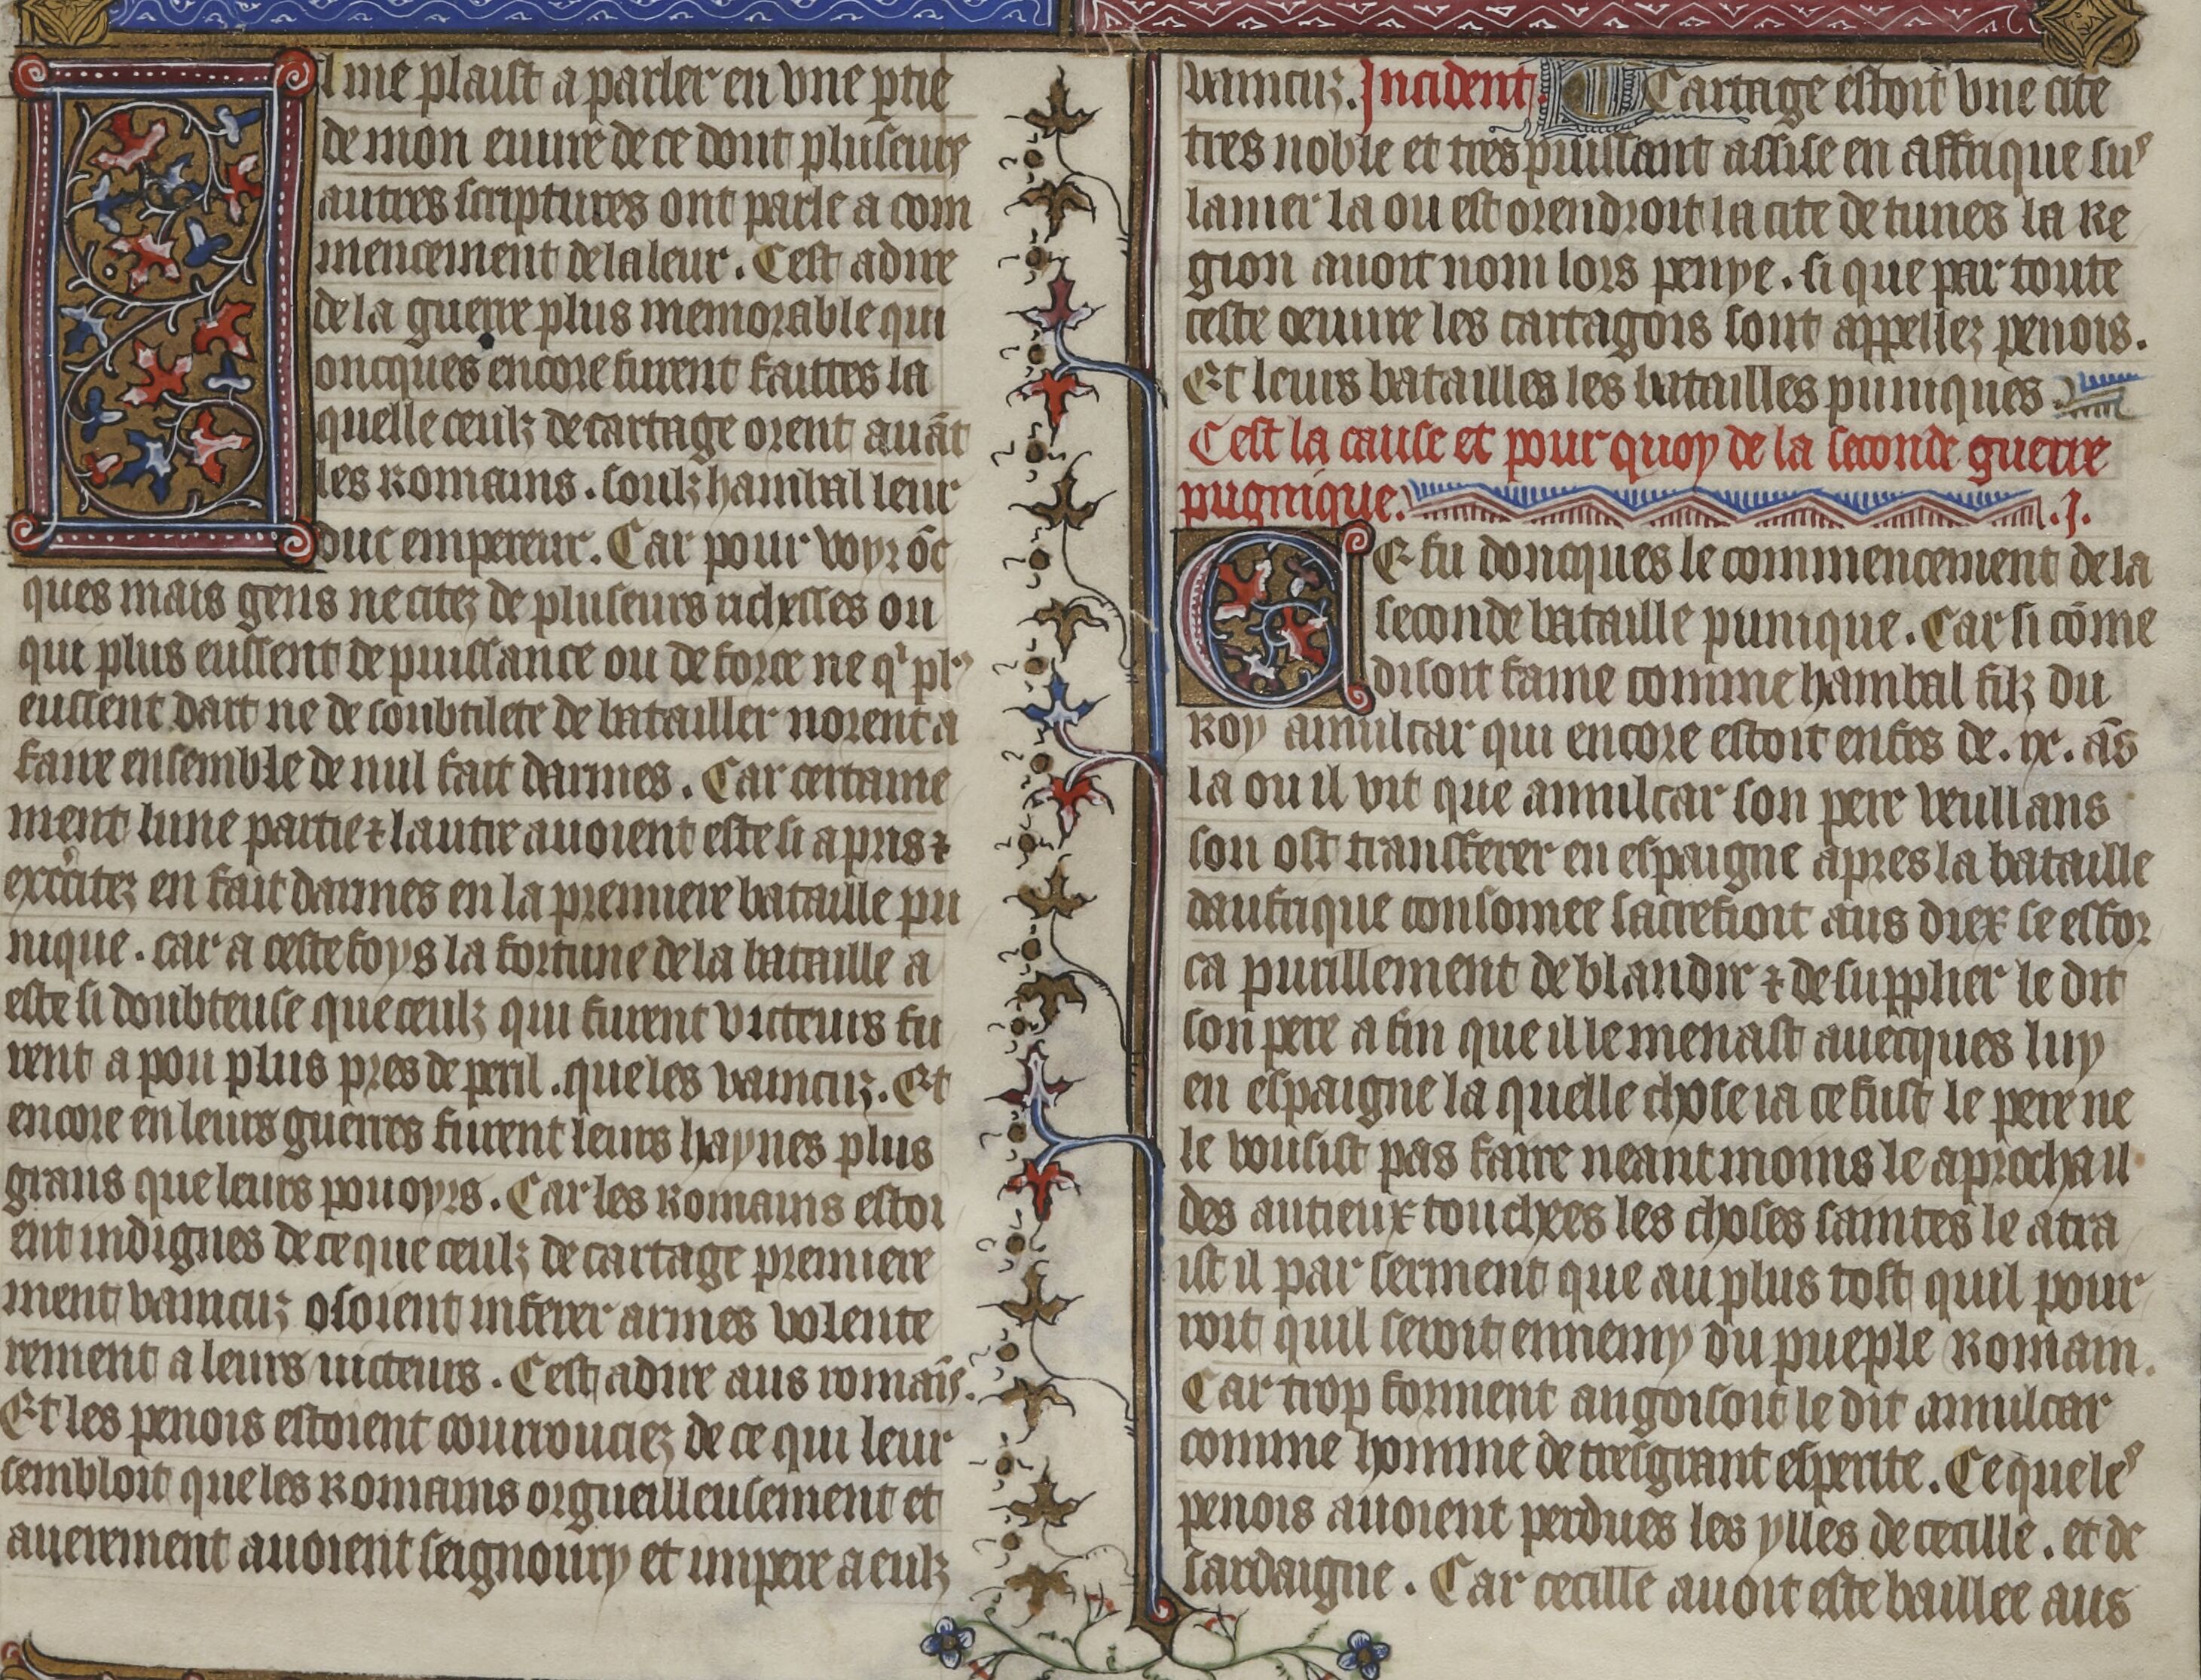 Il me plaist a parler en vne ptie
de mon euure de ce dont pluseurs
autres scriptures ont parle a com
mencement de la leur. Cest adire
de la guerre plus memorable qui
oncques encore furent faittes la
quelle ceulz de cartage orent auāt
les Romains. soulz hanibal leur
duc empereur. Car pour voyr ōc
ques mais gens ne citez de pluseurs richesses ou
qui plus eussent de puissance ou de force ne qͥ plꝰ
eussent dart ne de soubtilete de batailler norent a
faire ensemble de nul fait darmes. Car certaine
ment lune partie ⁊ lautre auoient este si apris ⁊
excitez en fait darmes en la premiere bataille pu
nique. car a ceste foys la fortune de la bataille a
este si doubteuse que ceulz qui furent victeurs fu
rent a pou plus pres de peril. que les vaincuz. Et
encore en leurs guerres furent leurs haynes plus
grans que leurs pouoyrs. Car les Romains estoi
ent indignes de ce que ceulz de cartage premiere
ment vaincuz osoient inferer armes volente
rement a leurs victeurs. Cest adire aus romaīs.
Et les penois estoient courrouciez de ce qui leur
sembloit que les Romains orgueilleusement et
auerement auoient seignoury et impere a eulz
vaincuz. Incident. Cartage estoit vne cite
tres noble et tres puissant assise en affrique suꝰ
la mer la ou est orendroit la cite de tunes la Re
gion auoit nom lors penye. si que par toute
ceste oeuure les cartagois sont appellez penois.
Et leurs batailles les batailles puniques.
Cest la cause et pour quoy de la seconde guerre
pugnique. .j.
Ce fu doncques le commencement de la
seconde bataille punique. Car si cōme
disoit fame comme hanibal filz du
Roy amilcar qui encore estoit enfes de .ix. ās
la ou il vit que amilcar son pere veullans
son ost transferer en espaigne apres la bataille
daufrique consomee sacrefioit aus diex se effor
ca purillement de blandir ⁊ de supplier le dit
son pere a fin que il le menast auecques luy
en espaigne la quelle chose ia ce fust le pere ne
le vousist pas faire neantmoins le aprocha il
des autieux touchees les choses saintes le atra
ist il par serment que au plus tost quil pour
roit quil seroit ennemy du pueple Romain.
Car trop forment angoisoit le dit amilcar
comme homme de tresgrant esperite. Ce que leˢ
penois auoient perdues les ylles de cecille. et de
sardaigne. Car cecille auoit este baillee aus